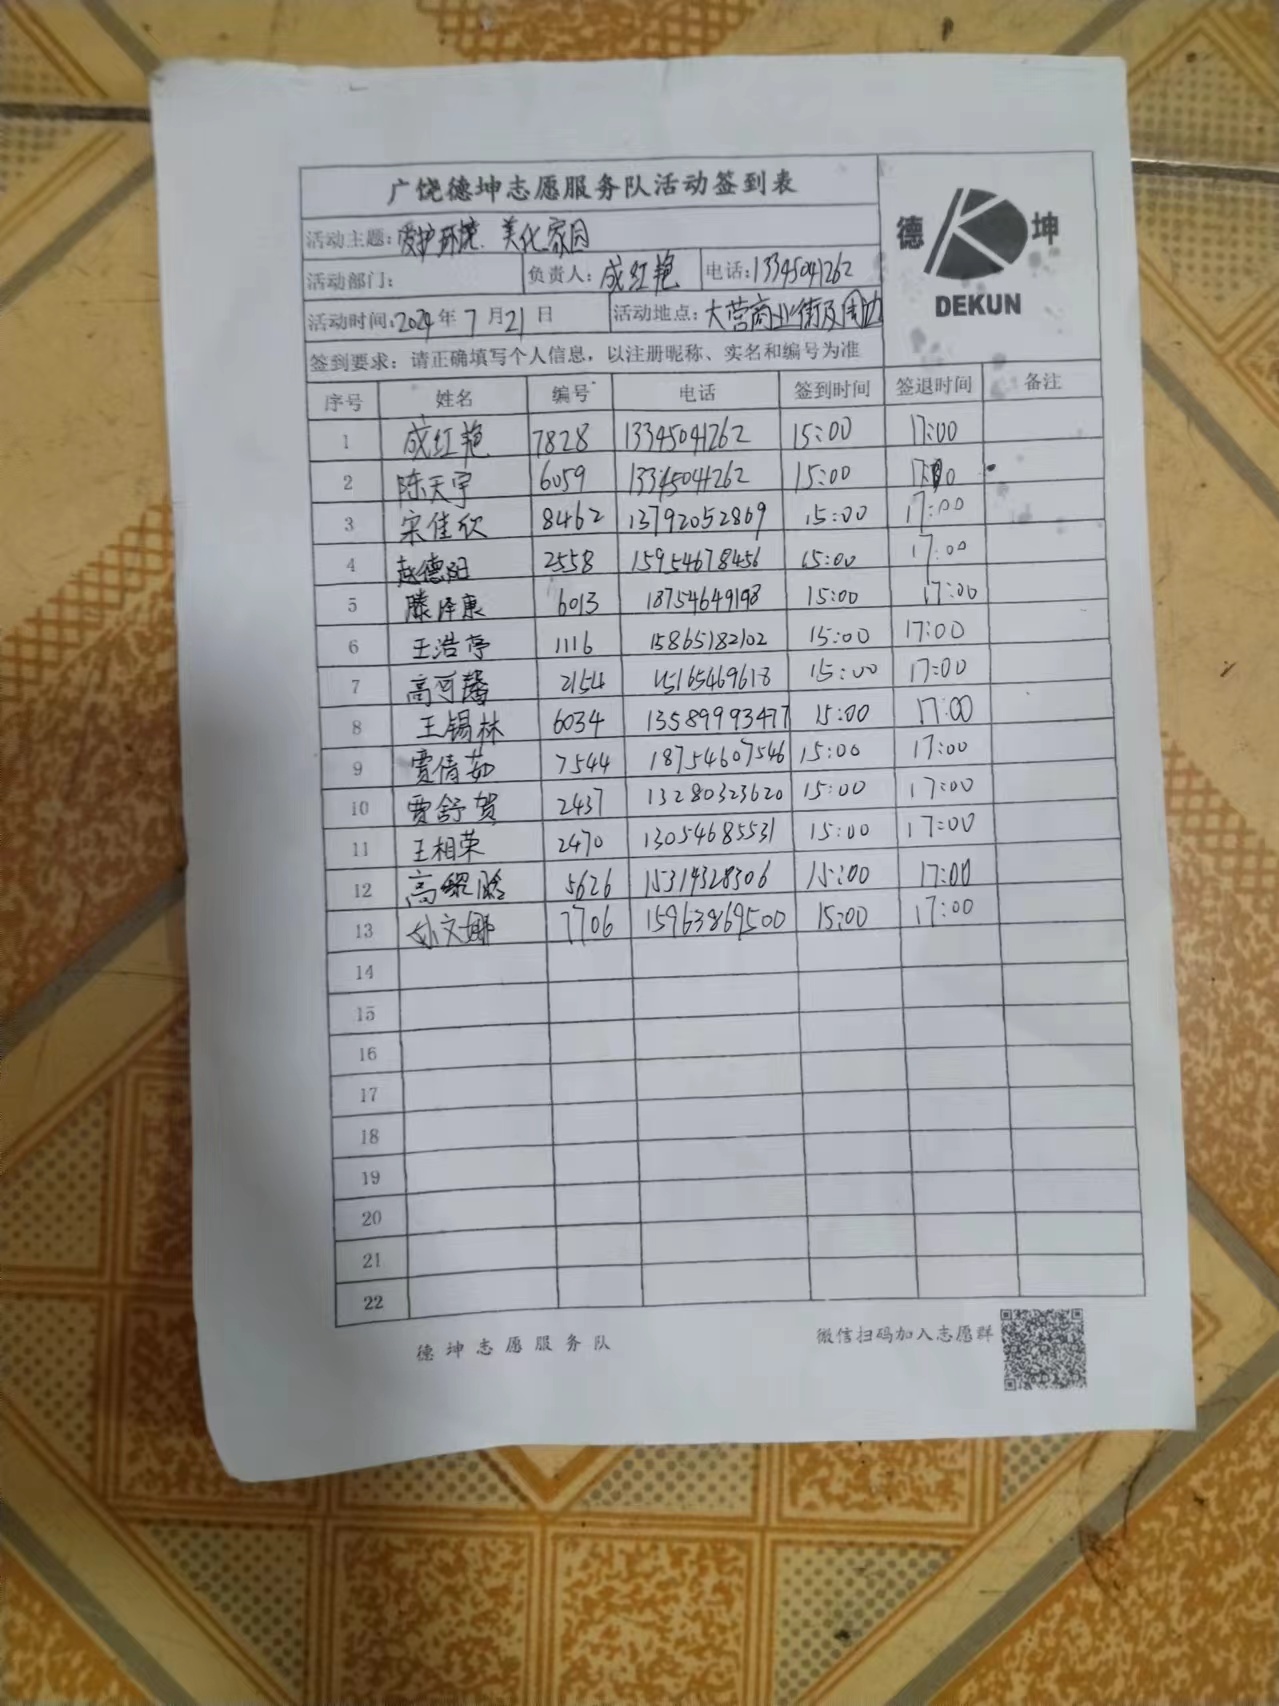 广饶德坤志愿服务队活动签到表
德 坤
DEKUN
活动主题:爱护环境、美化家园
活动部门: 负责人:成红艳 电话:13345041262
活动时间:2024年7月21日 活动地点:大营商业街及周边
签到要求:请正确填写个人信息,以注册昵称、实名和编号为准
序号 姓名 编号 电话 签到时间 签退时间 备注
1 成红艳 7828 13345041262 15:00 17:00
2 陈天宇 6059 13345041262 15:00
3 宋佳欣 8462 13792052869 15:00 17:00
4 赵德阳 2558 15954678456 15:00 17:00
5 滕泽惠 6013 18754649198 15:00 17:00
6 王浩亭 1116 15865182102 15:00 17:00
7 高可馨 2154 15165469618 15:00 17:00
8 王锡林 6034 13589993477 15:00 17:00
9 贾倩茹 7544 18754607546 15:00 17:00
10 贾舒贺 2437 13280323620 15:00 17:00
11 王相荣 2470 13054685531 15:00 17:00
12 高 5626 15314328306 15:00 17:00
13 孙文娜 7706 15963869500 15:00 17:00
14
15
16
17
18
19
20
21
22
德坤志愿服务队 微信扫码加入志愿群